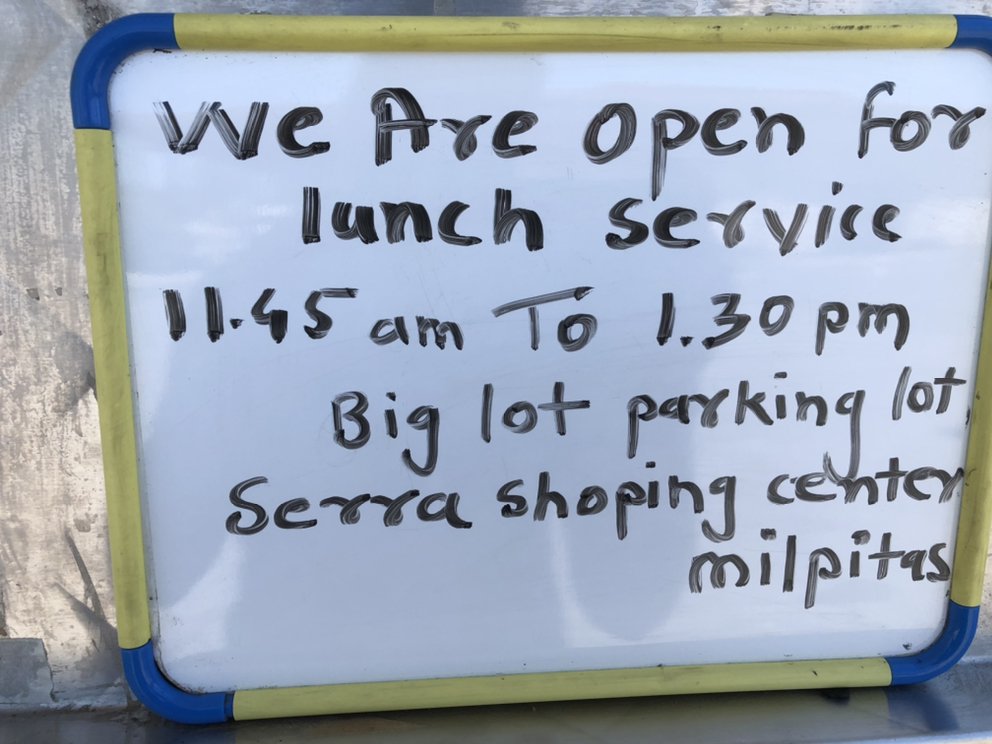 We Are Open for
lunch service
11.45 am To 1.30 pm
Big lot parking lot,
Serra shoping center
milpitas